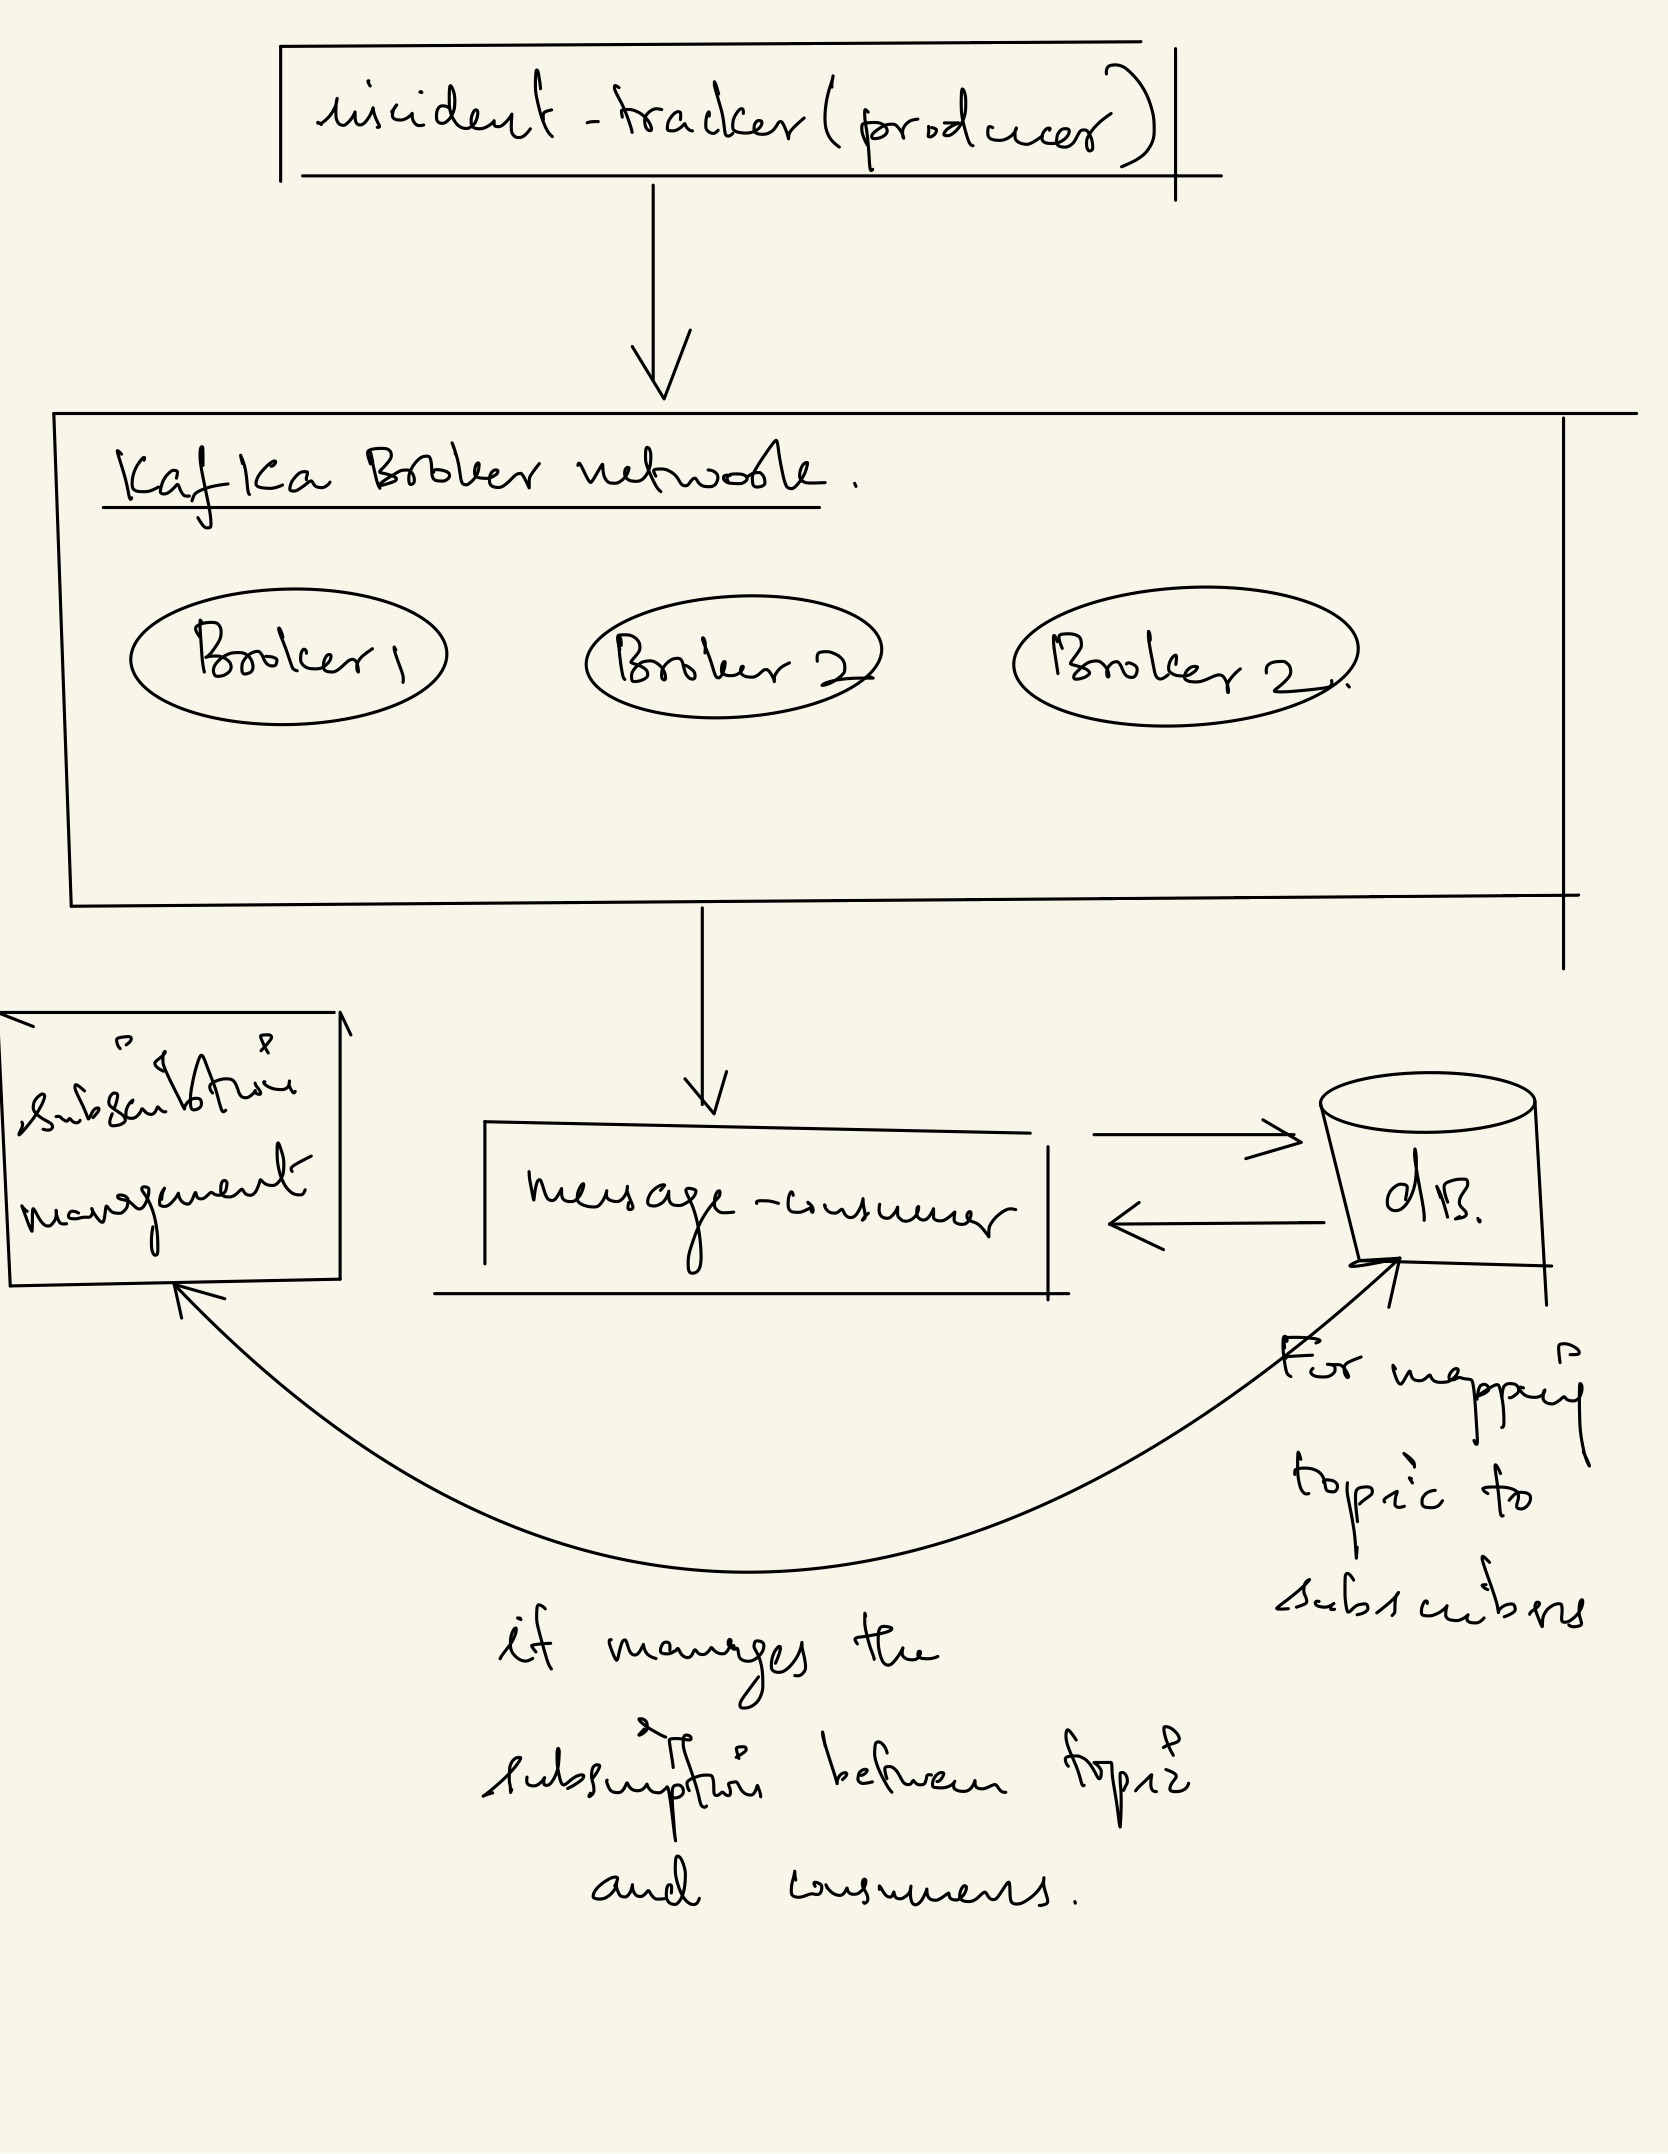 incident-tracker(producer)
Kafka Broker network.
Broker 1
Broker 2
Broker 2.
subscription
management
message-consumer
dB.
For mapping
topic to
subscribers
it manages the
subscription between topic
and consumers.